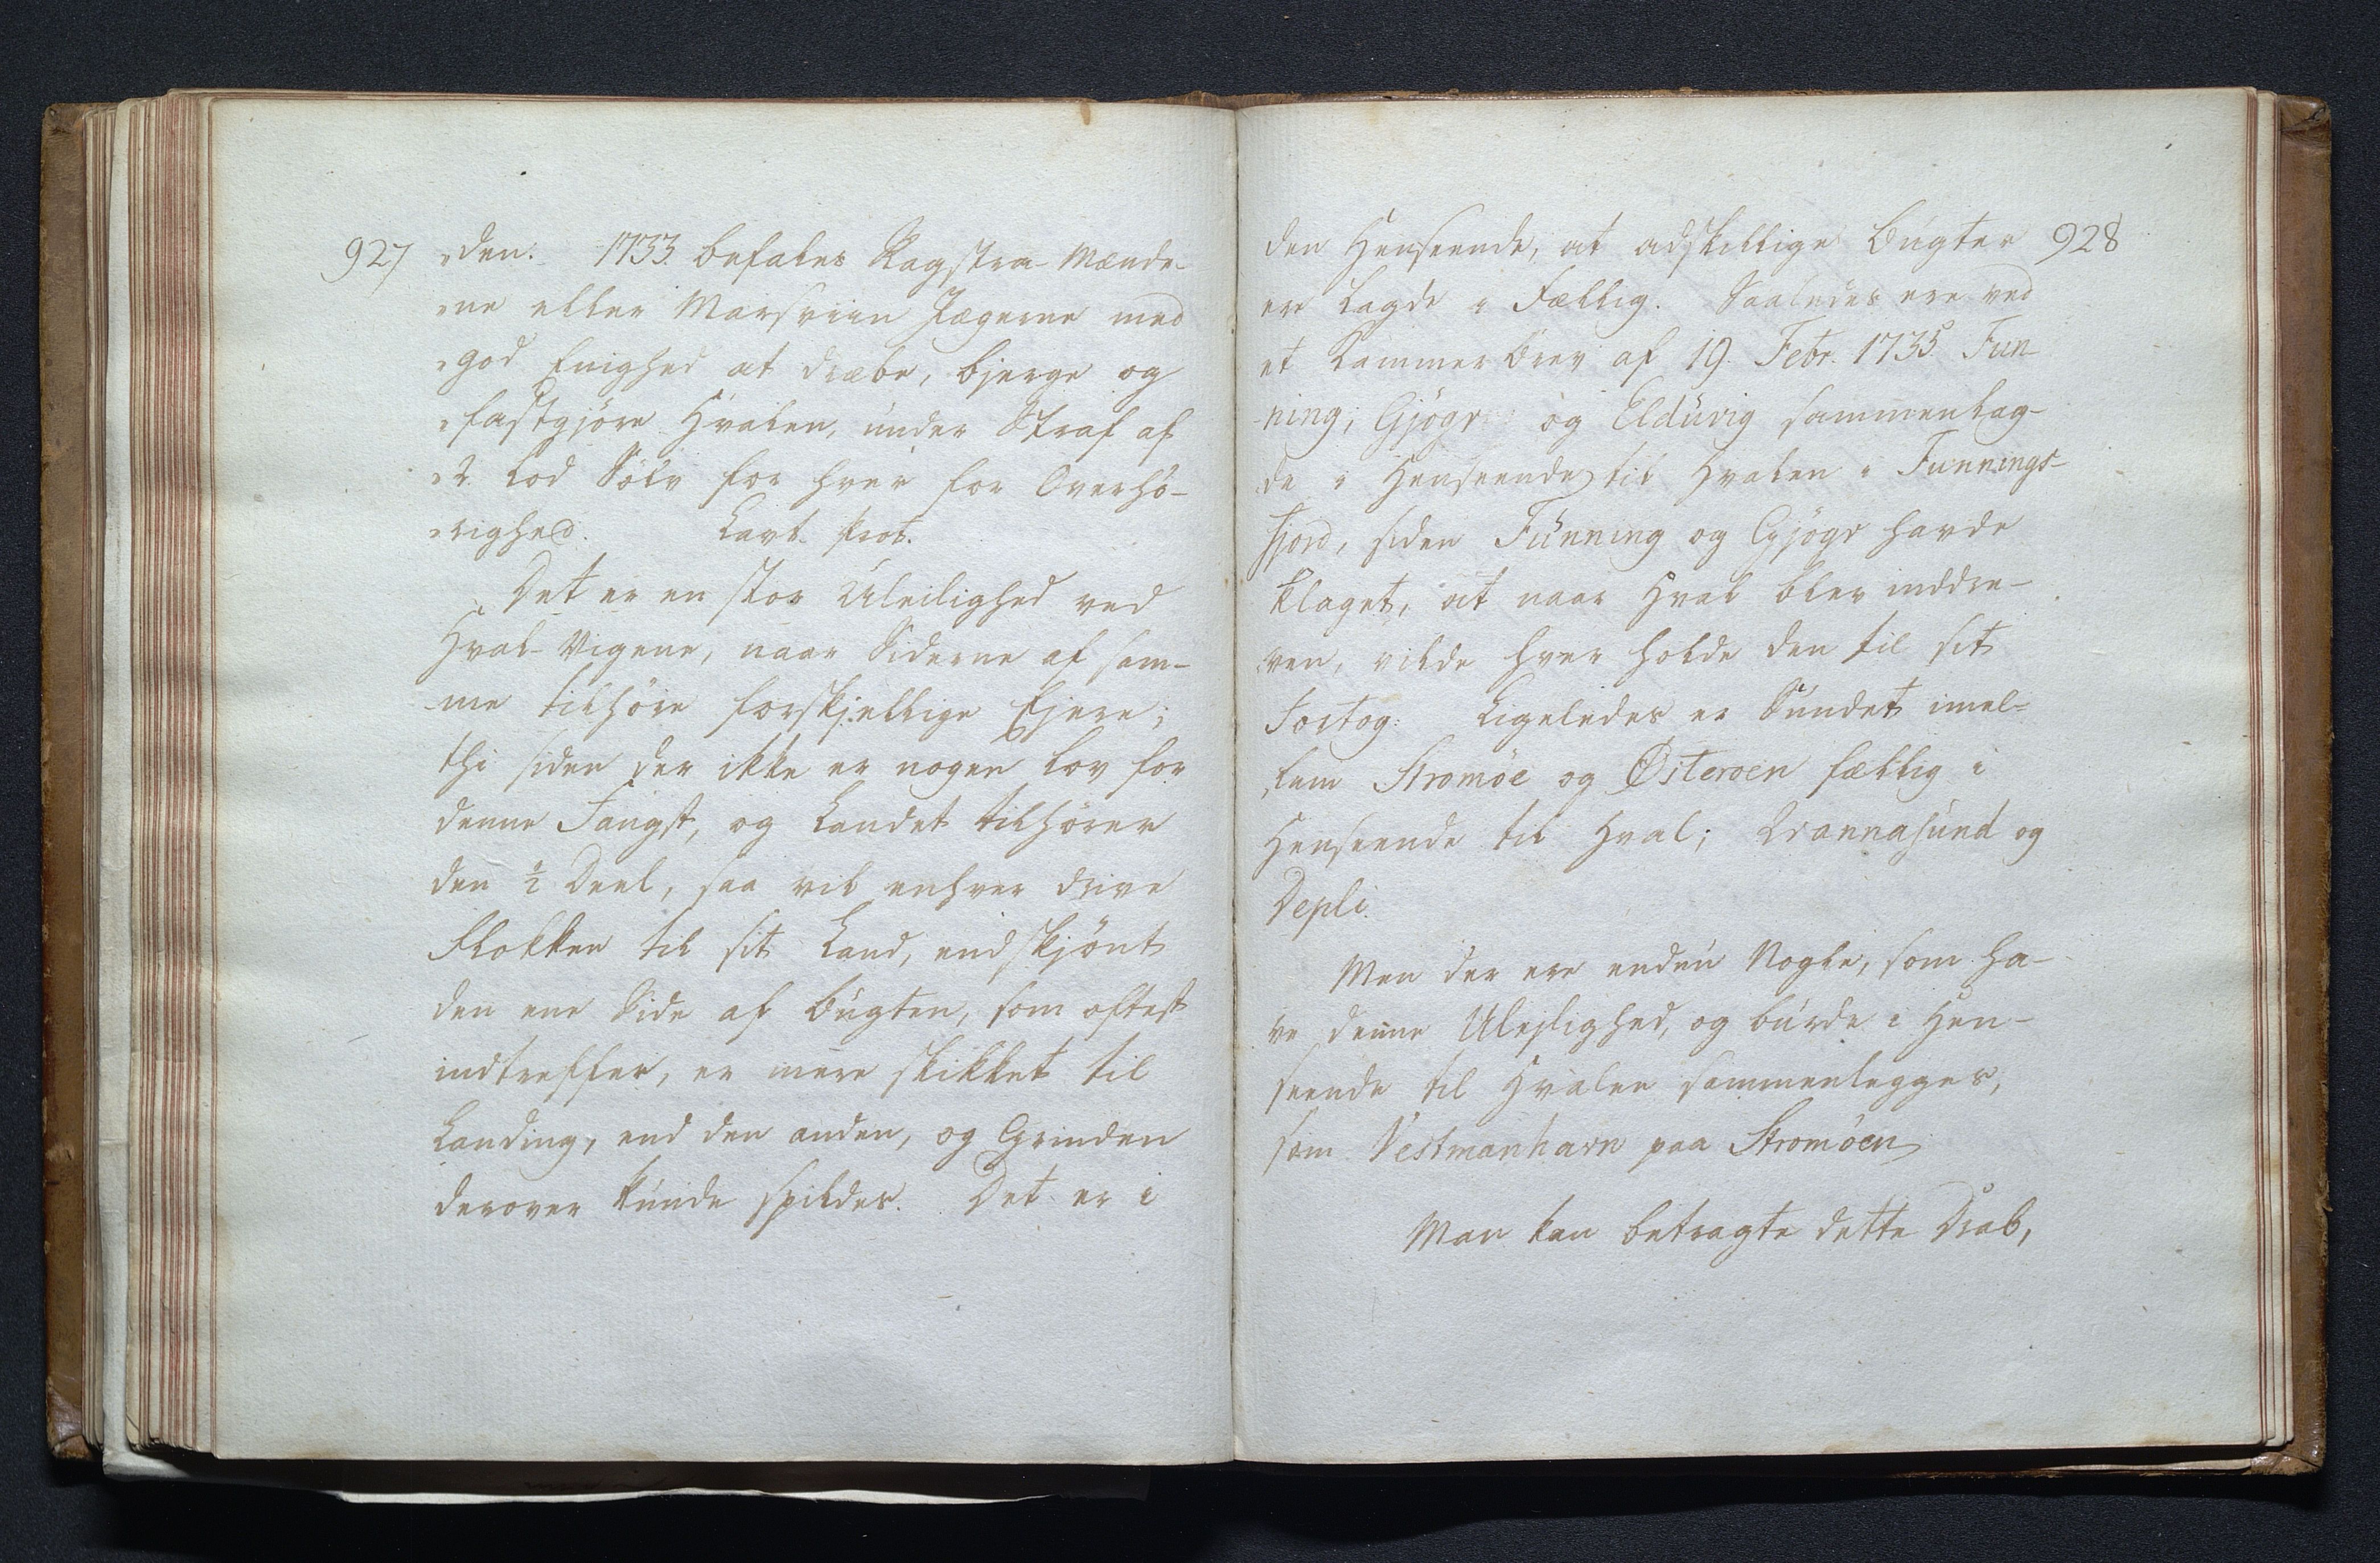 927
"den. 1733. befales Ragstra-Mænde-
"ne eller Marsviin Jægerne med
"god Enighed at dræbe, bjerge og
"fastgjöre Hvalen, under Straf af
"2 Lod Sölv for hver for Overhö-
"righed. Lavt. Prot.
Det er en stor Uleilighed ved
Hval-Vigene, naar Siderne af sam-
me tilhöre forskjellige Ejere;
thi siden der ikke er nogen Lov for
denne Fangst, og Landet tilhörer
den ½ Deel, saa vil enhver drive
Flokken til sit Land, endskjönt
den ene Side af Bugten, som oftest
indtreffer, er mere skikket til
Landing, end den anden, og Grinden
derover kunde spildes. Det er i
928
den Henseende, at adskillige Bugter
ere lagde i Fællig. Saaledes ere ved
et Kammer Brev af 19. Febr. 1735. Fun-
ning, Gjögv og Elduvig sammenlag-
de i Henseende til Hvalen i Funnings-
fjord, siden Funning og Gjögv havde
klaget, at naar Hval blev inddre-
ven, vilde hver holde den til sit
Fortog. Ligeledes er Sundet imel-
lem Strömöe og Österoen fællig i
Henseende til Hval; Qvannasund og
Depli.
Men der ere endnu Nogle, som ha-
ve denne Ulejlighed, og burde i Hen-
seende til Hvalen sammenlegges,
som Vestmanhavn paa Strömöen
Man kan betragte dette Drab,